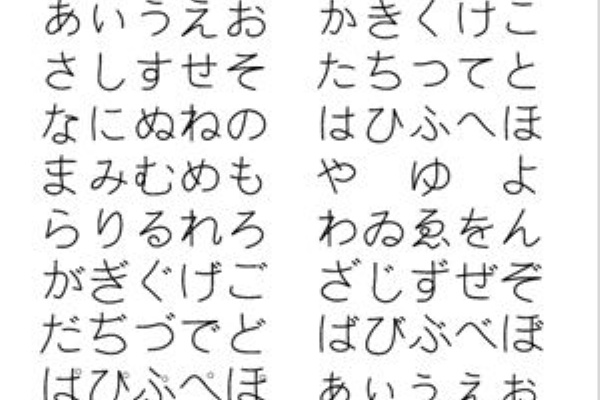 あいうえお かきくけこ
さしすせそ たちつてと
なにぬねの はひふへほ
まみむめも や ゆ よ
らりるれろ わゐゑをん
がぎぐげご ざじずぜぞ
だぢづでど ばびぶべぼ
ぱぴぷぺぽ あいうえお